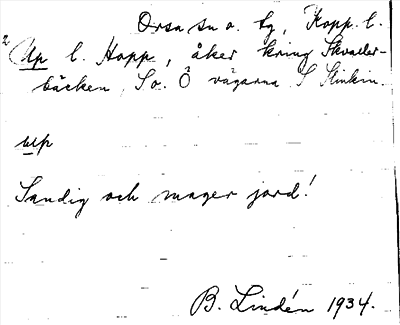 Orsa sn o. tg, Kopp l.
2 Up l. Hopp, åker kring Skvaller-
bäcken, S o. Ö vägarna S Slinkin.
up
Sandig och mager jord!
B. Lindén 1934.